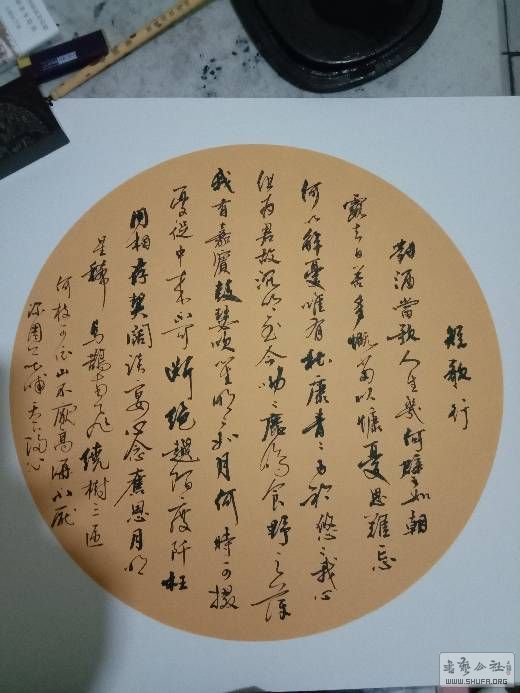 短歌行
對酒當歌人生幾何譬如朝
露去日苦多慨當以慷憂思難忘
何以解憂唯有杜康青〻子衿悠〻我心
但为君故沉吟至今呦〻鹿鳴食野之苹
我有嘉賓鼓瑟吹笙明〻如月何時可掇
憂從中来不可断绝越陌度阡枉
用相存契阔谈宴心念舊恩月明
星稀乌鹊南飞绕樹三匝
何枝可依山不厭高海不厭
深周公吐哺天下归心
书艺公社
WWW.SHUFA.ORG